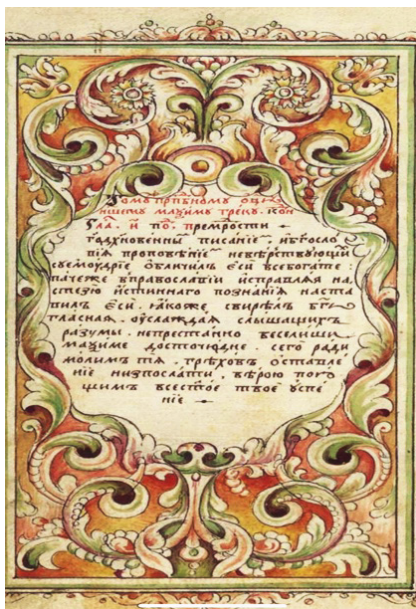 томъ прпⷣбномꙋ оц҃ꙋ
нашемꙋ маѯимꙋ грекꙋ. кон
гла. и҃ поⷣ. премрости
Бг҃одх҃новенны писанїе. и҆ бг҃осло
вїя проповѣнїе невѣрствꙋющиⷯ
сꙋемꙋдрїе ѡбличилъ є҆си всебогате:
паче же в̾православїи и҆справляя на
стезю и҆стиннаго познанїя наста
вилъ є҆си. ꙗ҆коже свирѣль бг҃о
гласная. ѹ҆слаждая слышащиⷯ
разꙋмы. непрестанно веселиши
маѯиме досточюдне. сего ради
молимъ тѧ. грѣховъ ѡставле
нїе низпослати. вѣрою пою
щимъ всест҃ое твое ѹ҆спе
нїе.